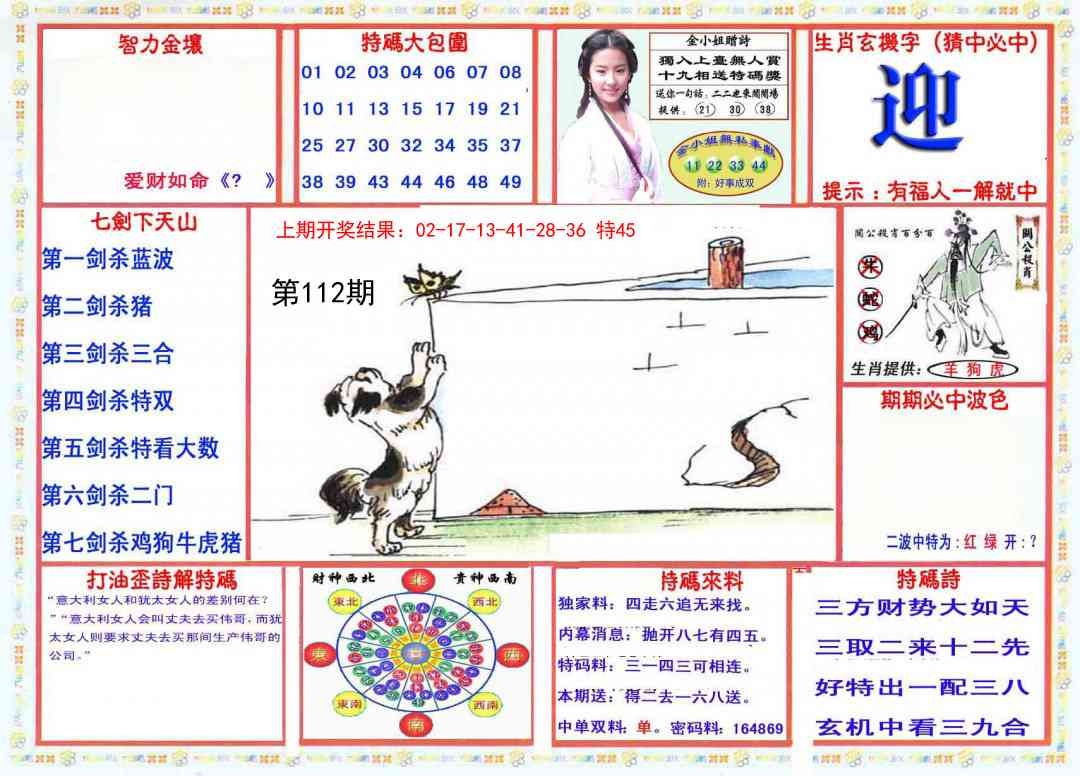 智力金壤
爱财如命《? 》
特碼大包圍
01 02 03 04 06 07 08
10 11 13 15 17 19 21
25 27 30 32 34 35 37
38 39 43 44 46 48 49
金小姐贈詩
獨入上臺無人賞
十九相送特碼獎
送你一句話：二二走東鬧鬧場
提供：21 30 38
金小姐無私奉獻
11 22 33 44
附：好事成双
生肖玄機字（猜中必中）
迎
提示：有福人一解就中
七劍下天山
第一剑杀蓝波
第二剑杀猪
第三剑杀三合
第四剑杀特双
第五剑杀特看大数
第六剑杀二门
第七剑杀鸡狗牛虎猪
上期开奖结果：02-17-13-41-28-36 特45
第112期
關公殺肖百分百
關公殺肖
牛
蛇
鸡
生肖提供：羊 狗 虎
期期必中波色
二波中特为：红 绿 开：?
打油歪詩解特碼
“意大利女人和犹太女人的差别何在?
”“意大利女人会叫丈夫去买伟哥，而犹
太女人则要求丈夫去买那间生产伟哥的
公司。”
财神西北
贵神西南
北
東北
西北
東
西
東南
西南
南
持碼來料
独家料：四走六追无来找。
内幕消息：抛开八七有四五。
特码料：三一四三可相连。
本期送：得二去一六八送。
中单双料：单。密码料：164869
特碼詩
三方财势大如天
三取二来十二先
好特出一配三八
玄机中看三九合